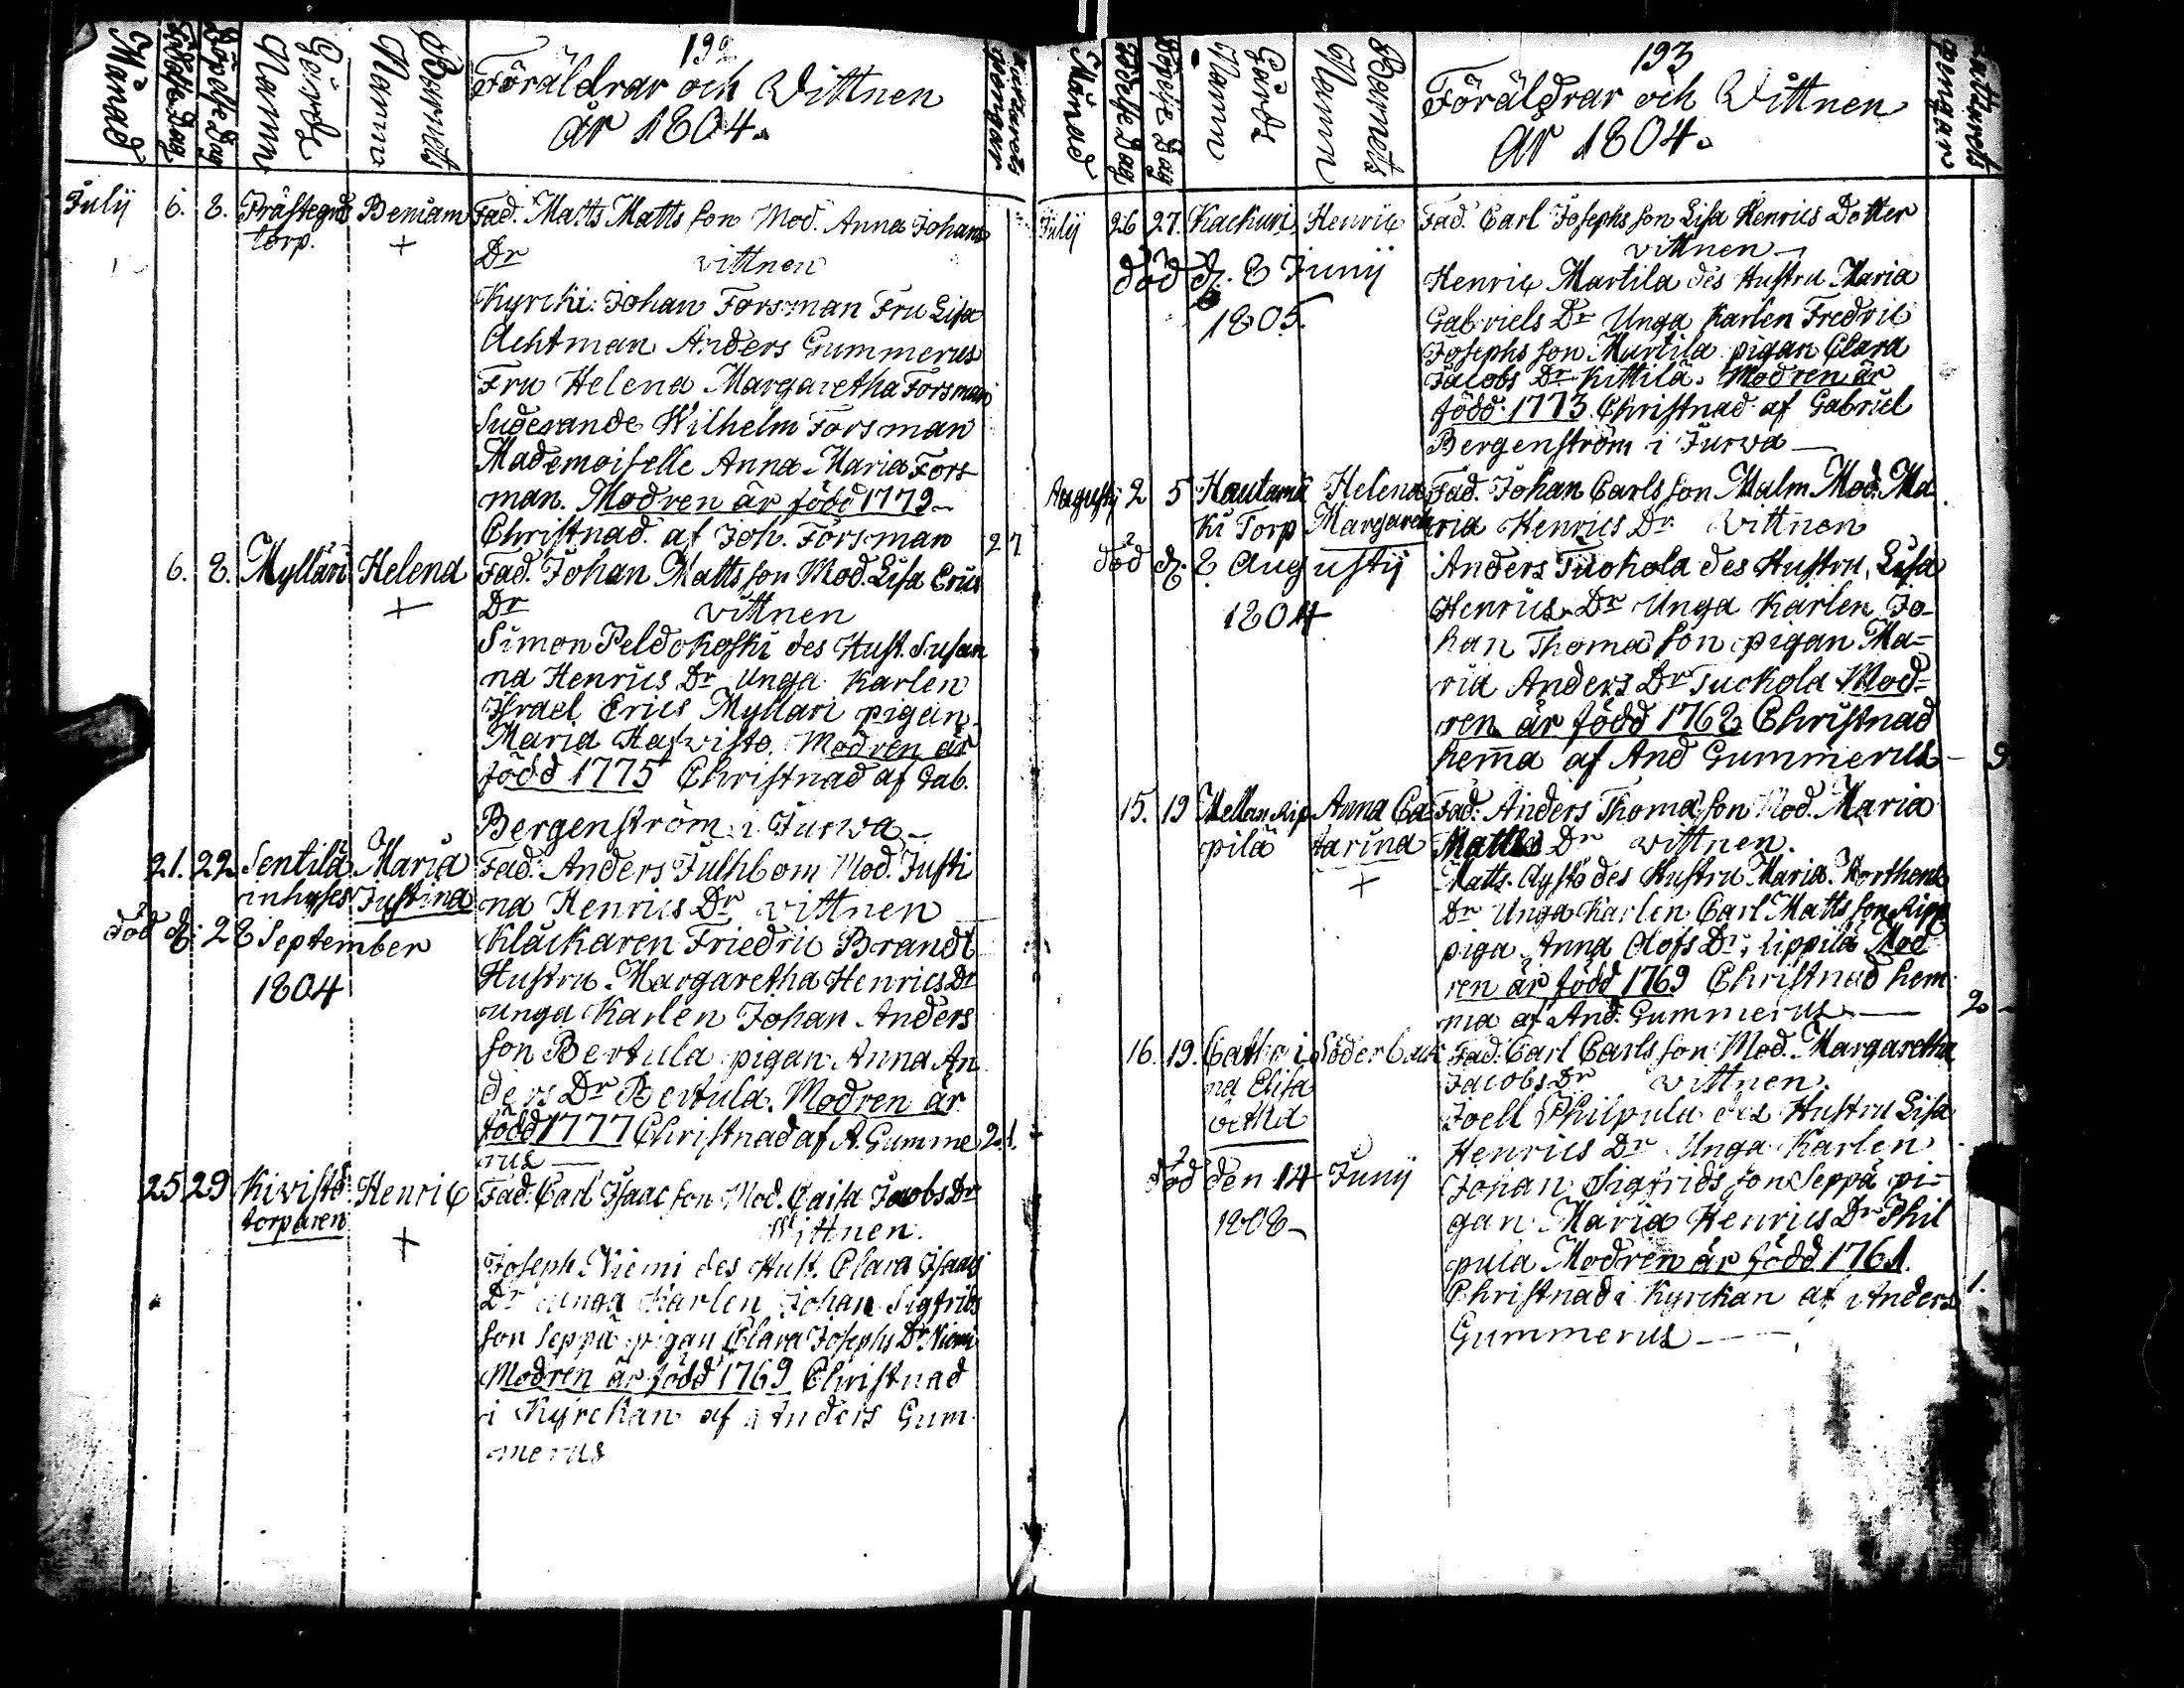 192
Föräldrar och Vittnen
år 1804.
Månad
Födelse Dag
Döpelse Dag
Gårds Namn
Barnets Namn
July 6. 8. Prästegårds Beniam Fad. Matts Matts son Mod. Anna Johans
torp. + Dr vittnen
Kyrcki: Johan Forsman Fru Lisa
Achtman Anders Gummerus
Fru Helena Margaretha Forsman
Suderande Wilhelm Forsman
Mademoiselle Anna Maria Fors
man. Modren är född 1779
Christnad af Joh. Forsman 27
6. 8. Mylläri Helena Fad. Johan Matts son Mod. Lisa Erics
+ Dr vittnen
Simon Peldokoski des Hust. Susan
na Henrics Dr Unga Karlen
Israel Erics Myllari pigan
Maria Hafvisto. Modren är
född 1775 Christnad af Gab.
Bergenström i Jurva
21. 22. Sentilä Maria Fad: Anders Julhbom Mod. Justi
inhyses Justina na Henrics Dr vittnen
död d: 28 September Kläckaren Friedric Brandt
1804 Hustru Margaretha Henrics Dr
unga Karlen Johan Anders
son Bertula pigan Anna An
ders Dr Bertula. Modren är
född 1777 Christnad af A. Gumme 21.
rus
25 29 Kivistö Henric Fad: Carl Isaac son Mod. Caisa Jacobs Dr
torparen + Wittnen.
Joseph Niemi des Hust. Clara Isaacs
Dr unga Karlen Johan Sigfrids
son Seppä pigan Clara Josephs Dr Niemi
Modren är född 1769 Christnad
i Kyrckan af Anders Gum
merus
193
Föräldrar och Vittnen
år 1804.
Månad
Födelse Dag
Döpelse Dag
Gårds Namn
Barnets Namn
July 26 27. Kackuri Henric Fad. Carl Josephs son Lisa Henrics Dotter
vittnen
död d. 8 Junij Henric Martila des Hustru Maria
1805. Gabriels Dr Unga Karlen Fredric
Josephs son Murtila pigan Clara
Jacobs Dr Kittilä. Modren är
född 1773 Christnad af Gabriel
Bergenström i Jurva
Augustij 2 5 Hautamä Helena Fad. Johan Carls son Malm Mod. Ma
ki Torp Margareth ria Henrics Dr. vittnen
död d. 8 Augustij Anders Tuokola des Hustru, Lisa
1804 Henrics Dr Unga Karlen Jo-
han Thoma son pigan Ma=
ria Anders Dr Tuokola Mod=
ren är född 1768 Christnad
hem̄a af And Gummerus 9
15. 19 Mellan Rip Anna Ca Fad. Anders Thoma son Mod. Maria
pilä tarina Matts Dr vittnen.
+ Matts Aystö des Hustru Maria
Dr Unga Karlen Carl Matts son Ripp
piga Anna Olofs Dr, Rippilä Mod
ren är född 1769 Christnad hem
ma af And. Gummerus 2
16. 19. Cathri Söderback Fad. Carl Carls son Mod. Margaretha
na Elisa Jacobs Dr vittnen.
betha Joell Philpula des Hustru Lisa
Henrics Dr Unga Karlen
död den 14 Junij Johan Sigfrids son Seppä pi=
1808 gan Maria Henrics Dr Phil
pula Modren är född 1761.
Christnad i Kyrckan af Anders 1.
Gummerus